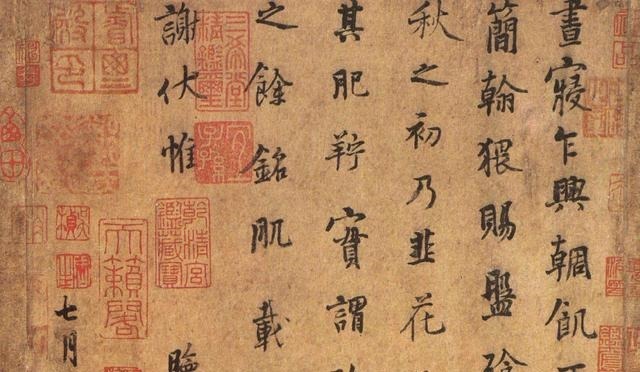 晝寢乍興輖飢
簡翰猥賜盤
秋之初乃韭花
其肥羜實謂
之餘銘肌載
謝伏惟
七月
三希堂精鑑璽
宜子孫
乾清宮鑑藏寶
天籟閣